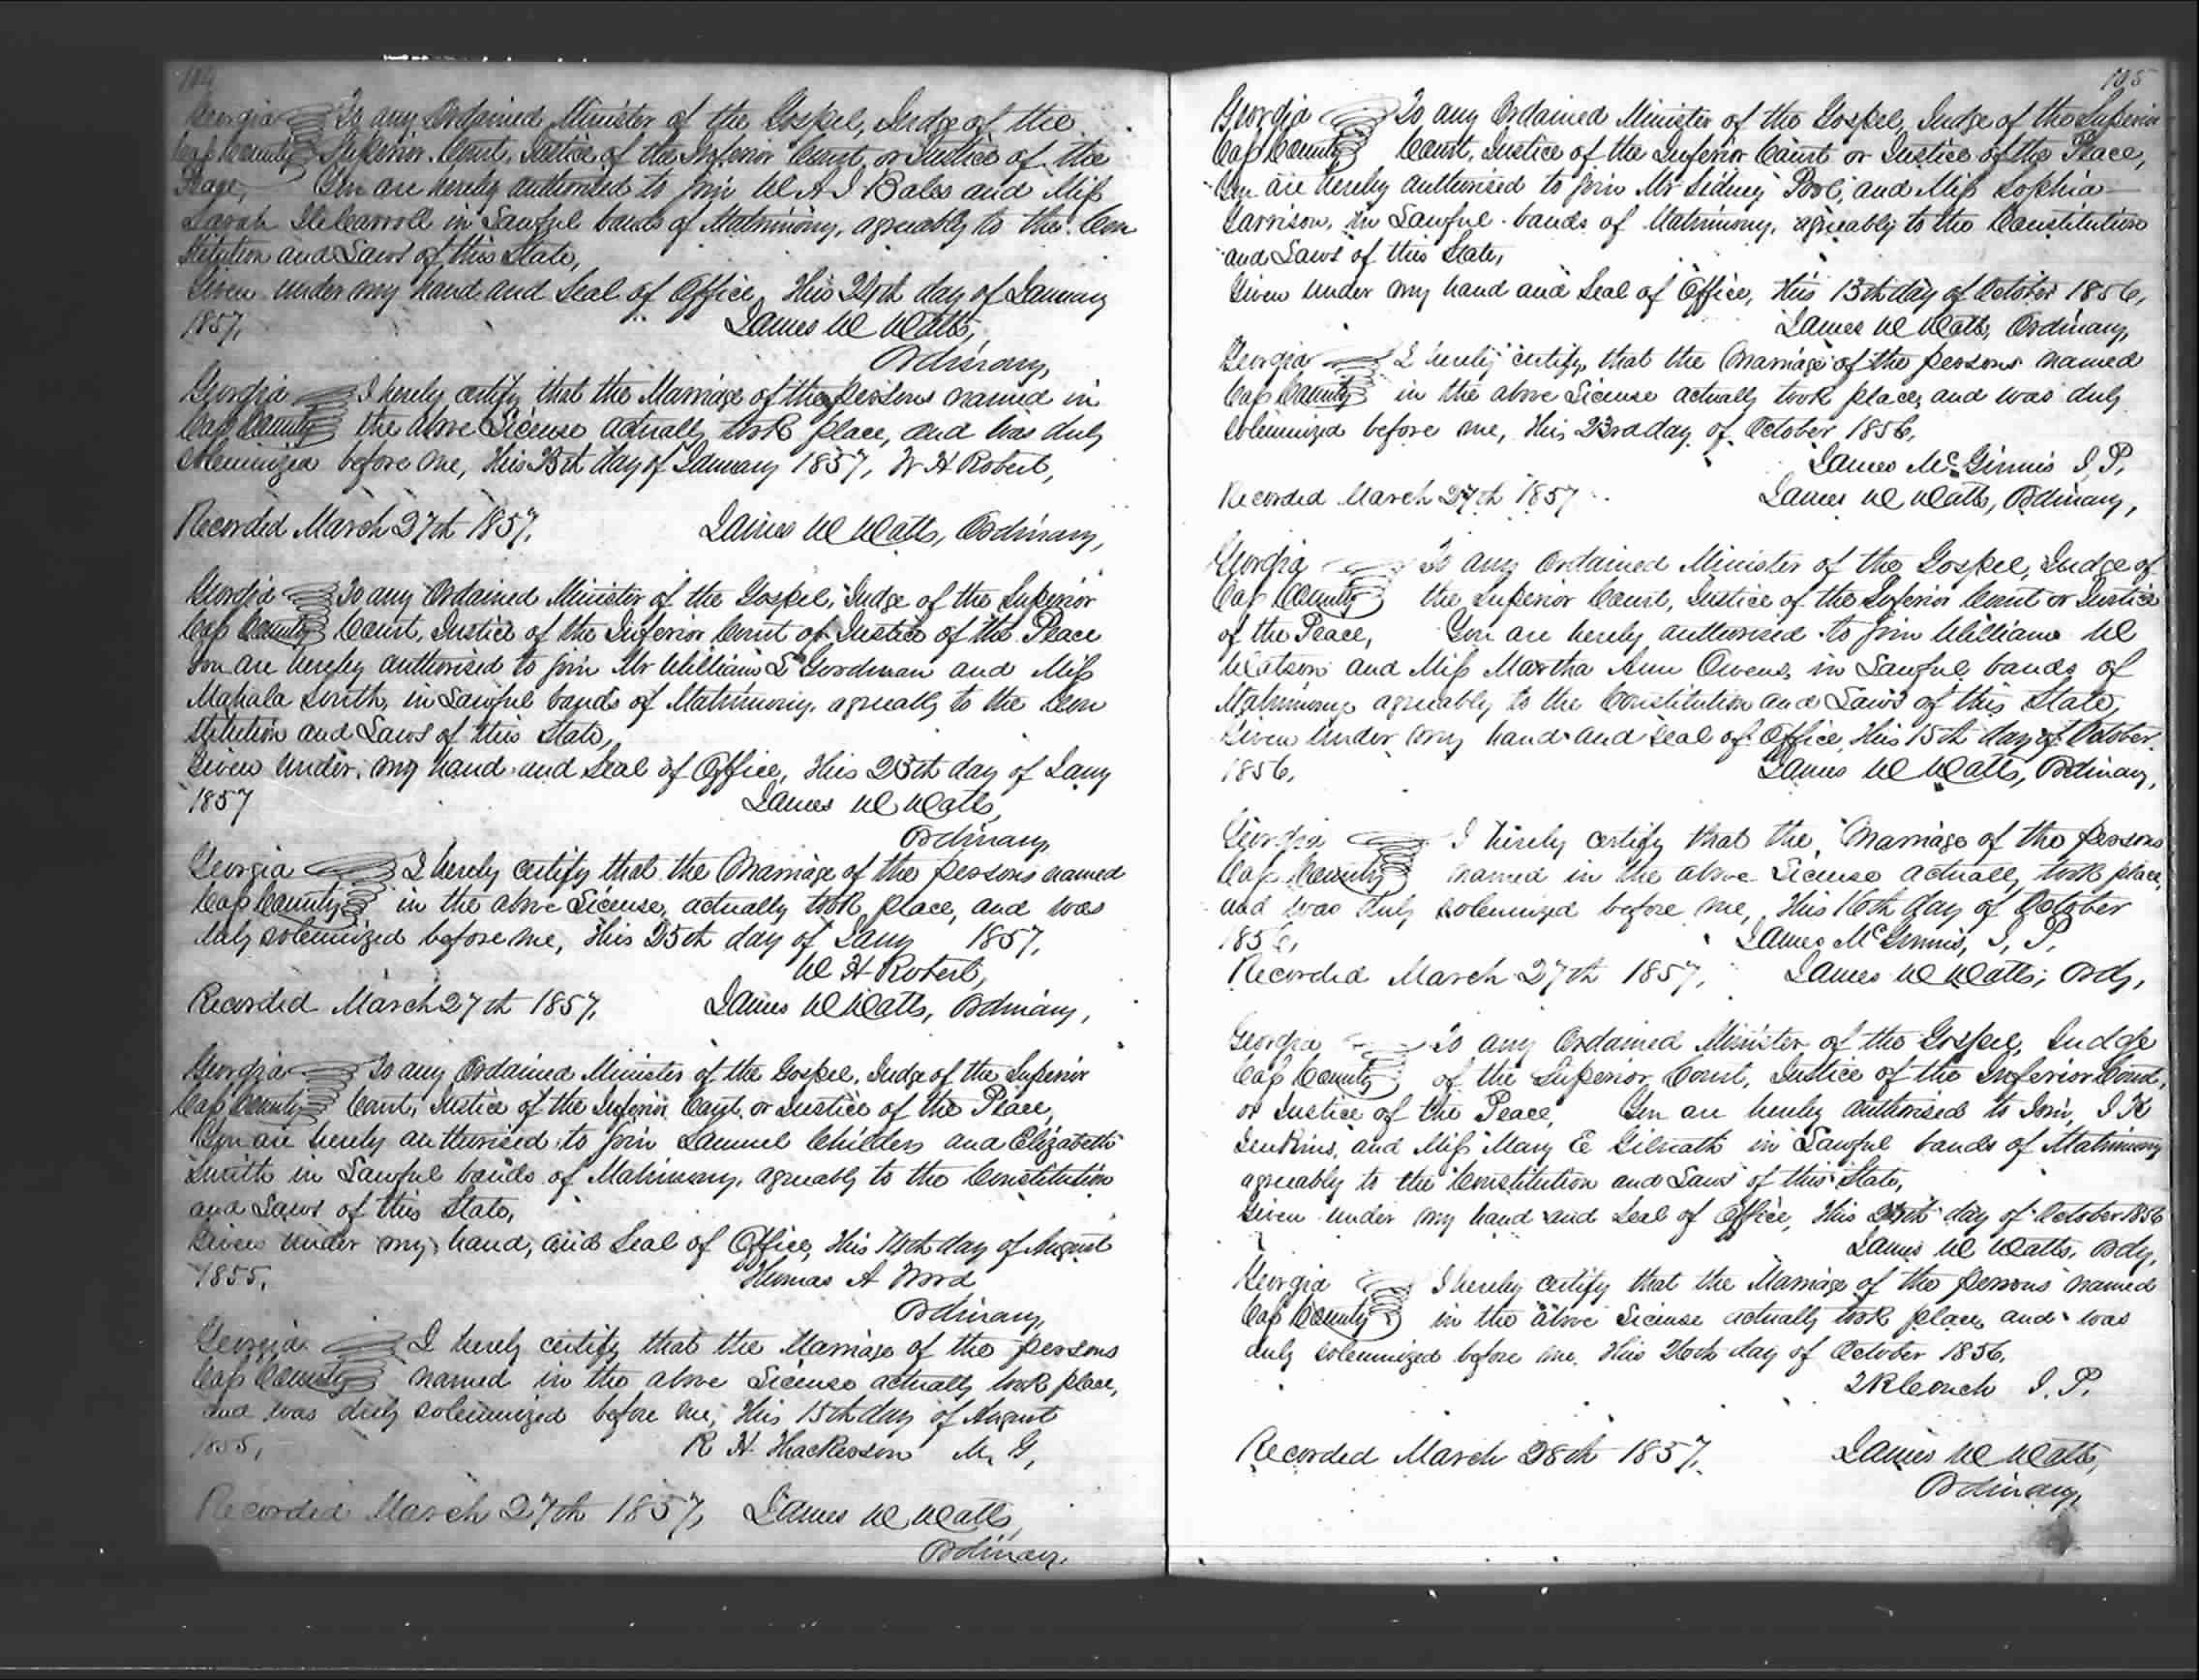 104
Georgia To any Ordained Minister of the Gospel, Judge of the
Cass County Superior Court, Justice of the Inferior Court, or Justice of the
Peace, You are hereby authorised to join W A J Bales and Miss
Sarah in Lawful bands of Matrimony, agreeably to the Con
stitution and Laws of this State,
Given under my hand and Seal of Office, this day of January
1857, James W Watts,
Ordinary,
Georgia I hereby certify that the Marriage of the persons named in
Cass County the above License actually took place, and was duly
solemnized before me, this day of January 1857, W H Robert,
Recorded March 27th 1857, James W Watts, Ordinary,
Georgia To any Ordained Minister of the Gospel, Judge of the Superior
Cass County Court, Justice of the Inferior Court or Justice of the Peace
You are hereby authorised to join Mr William S Goodman and Miss
Mahala Smith, in Lawful bands of Matrimony, agreeably to the Con
stitution and Laws of this State,
Given under my hand and Seal of Office, this 25th day of Jany
1857 James W Watts,
Ordinary,
Georgia I hereby certify that the Marriage of the persons named
Cass County in the above License, actually took place, and was
duly solemnized before me, this 25th day of Jany 1857,
W H Robert,
Recorded March 27th 1857, James W Watts, Ordinary,
Georgia To any Ordained Minister of the Gospel, Judge of the Superior
Cass County Court, Justice of the Inferior Court, or Justice of the Peace,
You are hereby authorised to join Samuel Childers and Elizabeth
Smith in Lawful bands of Matrimony, agreeably to the Constitution
and Laws of this State,
Given under my hand, and Seal of Office, this 14th day of August
1855, Thomas A Word
Ordinary,
Georgia I hereby certify that the Marriage of the persons
Cass County named in the above License actually took place,
and was duly solemnized before me, this 15th day of August
1855, R H Thackerson M, G,
Recorded March 27th 1857, James W Watts,
Ordinary,
105
Georgia To any Ordained Minister of the Gospel, Judge of the Superior
Cass County Court, Justice of the Inferior Court or Justice of the Peace,
You are hereby authorised to join Mr Sidney Pool, and Miss Sophia
Garrison, in Lawful bands of Matrimony, agreeably to the Constitution
and Laws of this State,
Given under my hand and Seal of Office, this 13th day of October 1856,
James W Watts, Ordinary,
Georgia I hereby certify, that the Marriage of the persons named
Cass County in the above License actually took place, and was duly
solemnized before me, this 23rd day of October 1856,
James McGinnis J, P,
Recorded March 27th 1857 James W Watts, Ordinary,
Georgia To any Ordained Minister of the Gospel, Judge of
Cass County the Superior Court, Justice of the Inferior Court or Justice
of the Peace, You are hereby authorised to join William W
Watson and Miss Martha Ann Owens, in Lawful bands of
Matrimony agreeably to the Constitution and Laws of this State,
Given under my hand and Seal of Office, this 15th day of October
1856, James W Watts, Ordinary,
Georgia I hereby certify that the Marriage of the persons
Cass County named in the above License actually took place,
and was duly solemnized before me, this 16th day of October
1856, James McGinnis, J, P,
Recorded March 27th 1857, James W Watts, Ordy,
Georgia To any Ordained Minister of the Gospel, Judge
Cass County of the Superior Court, Justice of the Inferior Court,
or Justice of the Peace, You are hereby authorised to Join, J K
Jenkins, and Miss Mary E Gilreath in Lawful bands of Matrimony
agreeably to the Constitution and Laws of this State,
Given under my hand and Seal of Office, this day of October 1856
James W Watts, Ordy,
Georgia I hereby certify that the Marriage of the persons named
Cass County in the above License actually took place, and was
duly solemnized before me, this 26th day of October 1856,
Couch J. P.
Recorded March 28th 1857, James W Watts,
Ordinary,